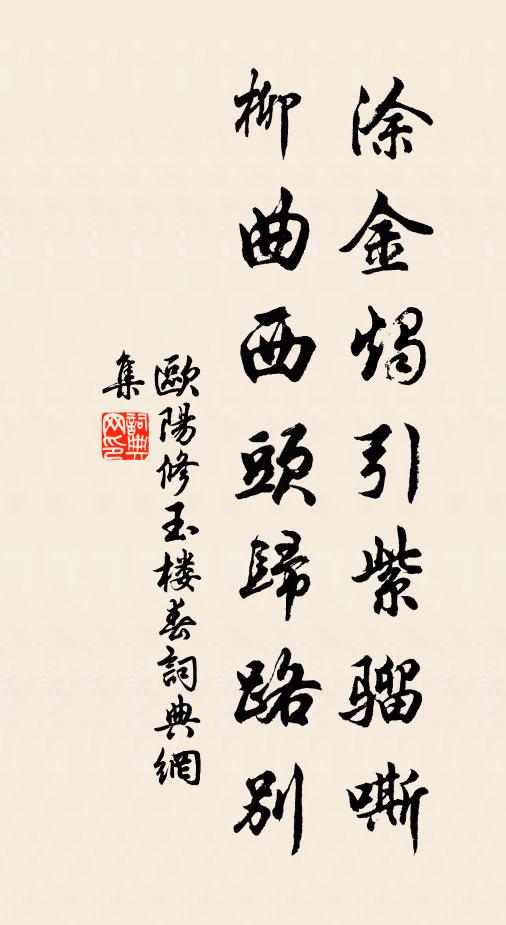 涂金燭引紫騮嘶
柳曲西頭歸路別
歐陽修玉楼春詞典網
集
詞典
网印